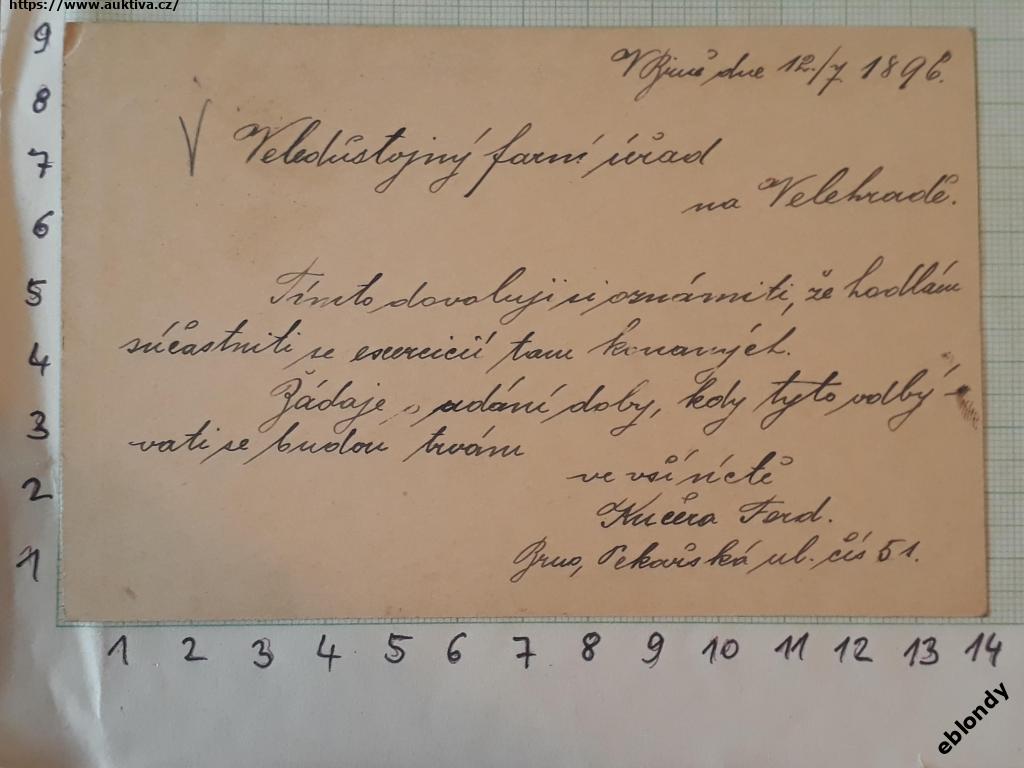 https://www.auktiva.cz/
V Brně dne 12./7 1896.
V Veledůstojný farní úřad
na Velehradě.
Tímto dovoluji si oznámiti, že hodlám
súčastniti se exercicií tam konaných.
Žádaje o udání doby, kdy tyto odbý-
vati se budou trvám
ve vší úctě
Kučera Ferd.
Brno, Pekařská ul. čís 51.
9
8
7
6
5
4
3
2
1
1 2 3 4 5 6 7 8 9 10 11 12 13 14
eblondy